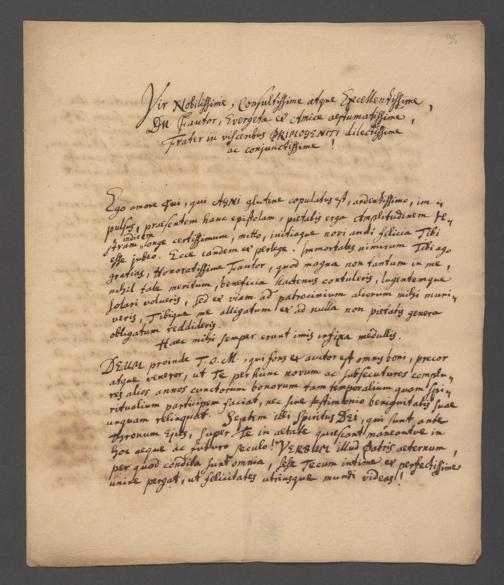 95
Vir Nobilissime, Consultissime atque Excellentissime,
Dn Fautor, Evergeta et Amice aestumatissime,
Frater in visceribus PRIMOGENITI dilectissime
ac conjunctissime!
Ego amore Tui, qui AGNI glutine copulatus est, ardentissimo, im-
pulsus, praesentem hanc epistolam, pietatis erga Amplitudinem Ve-
stram indicem longe certissimum, mitto, initiaque novi anni felicia Tibi
esse jubeo. Ecce eandem et perlege. Immortales nimirum Tibi ago
gratias, Honoratissime Fautor, quod magna non tantum in me,
nihil tale meritum, beneficia hactenus contuleris, lugentemque
solari volueris, sed et viam ad patrocinium aliorum mihi muni-
veris, Tibique me alligatum et id nulla non pietatis genera
obligatum reddideris.
Haec mihi semper erunt imis infixa medullis.
DEUM proinde T.O.M., qui fons et auctor est omnis boni, precor
atque veneror, ut Te per hunc novum ac subsecuturos complu-
res alios annos cunctorum bonorum tam temporalium quam spi-
ritualium participem faciat, nec sine testimonio benignitatis suae
unquam relinquat. Septem illi Spiritus DEI, qui sunt ante
thronum Ejus, super Te in aetate quiescant maneantve in
hoc aeque ac futuro seculo! VERBUM illud Patris aeternum,
per quod condita sunt omnia, sese Tecum intime et perfectissime
unire pergat, ut felicitates utriusque mundi videas!